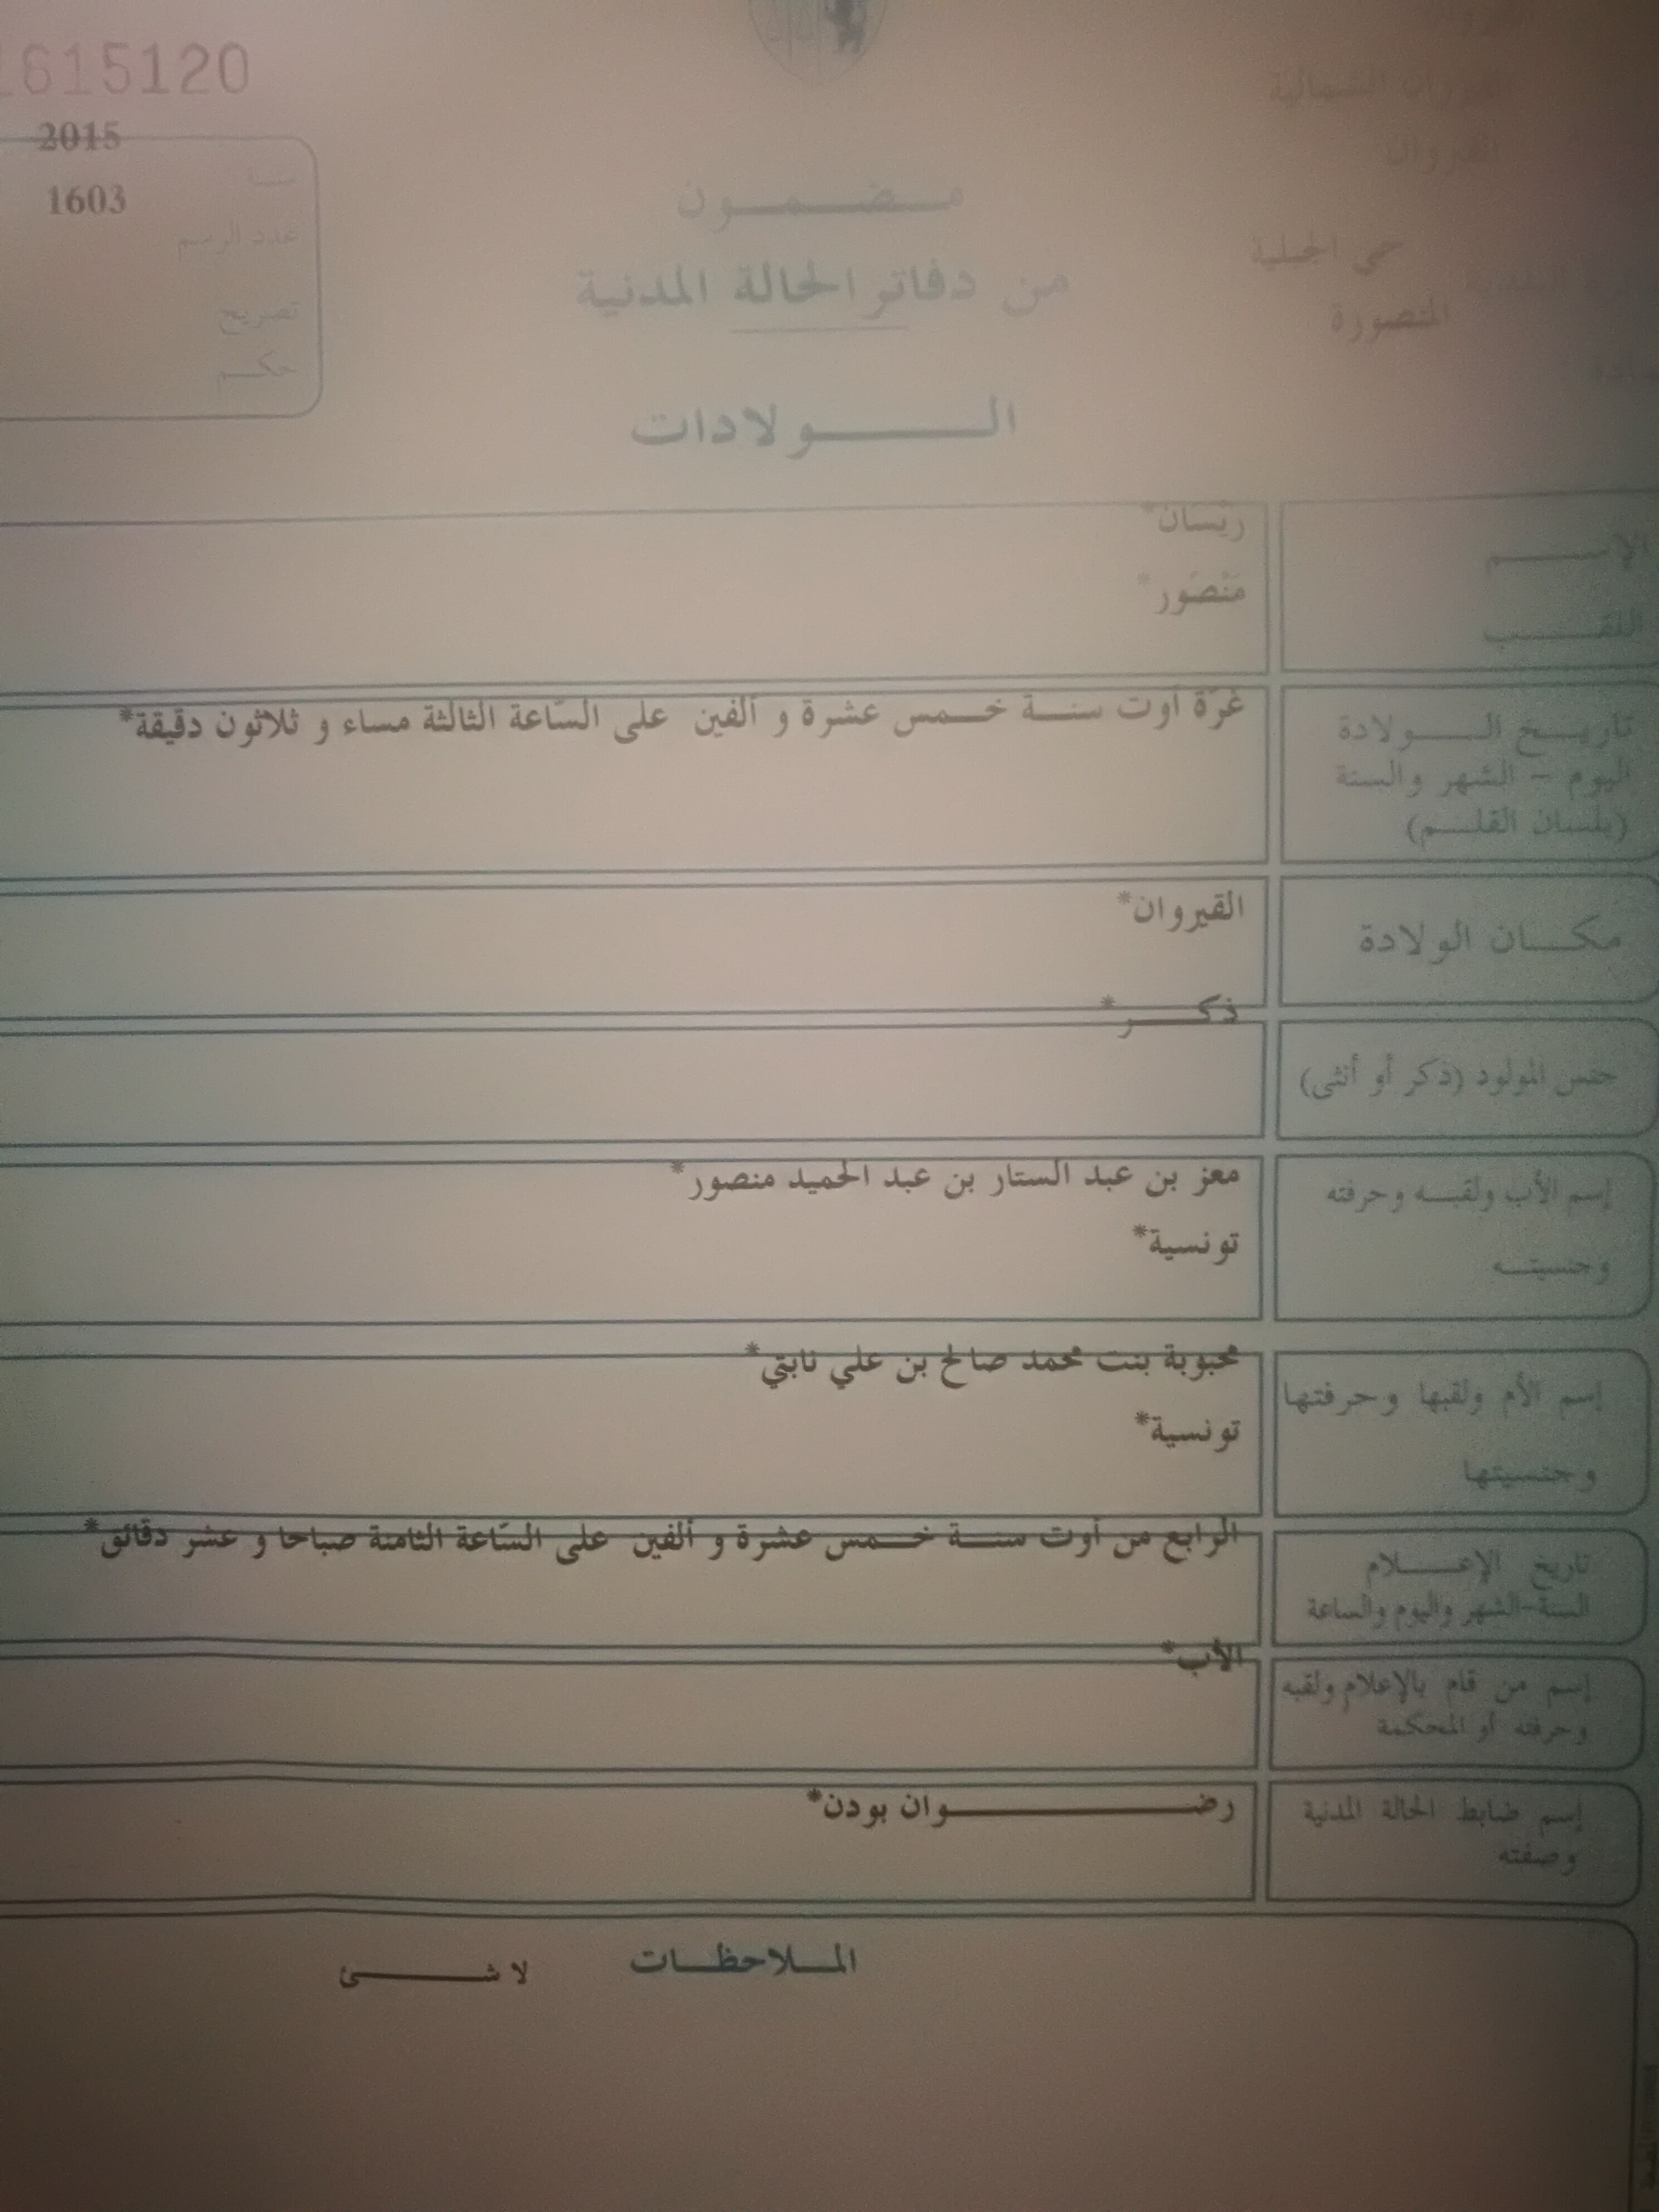 1615120
القيروان الشمالية
القيروان
2015
سنة
1603
عدد الرسم
تصريح
حكم
حي الجبلية
المنصورة
مضمون
من دفاتر الحالة المدنية
الولادات
الإسم
ريسان*
اللقب
مَنْصُور*
تاريخ الولادة
اليوم - الشهر والسنة
(بلسان القلم)
غرّة أوت سنة خمس عشرة و ألفين على السّاعة الثالثة مساء و ثلاثون دقيقة*
مكان الولادة
القيروان*
جنس المولود (ذكر أو أنثى)
ذكر*
إسم الأب ولقبه وحرفته
وجنسيته
معز بن عبد الستار بن عبد الحميد منصور*
تونسية*
إسم الأم ولقبها وحرفتها
وجنسيتها
محبوبة بنت محمد صالح بن علي نابتي*
تونسية*
تاريخ الإعلام
السنة-الشهر واليوم والساعة
الرابع من أوت سنة خمس عشرة و ألفين على السّاعة الثامنة صباحا و عشر دقائق*
إسم من قام بالإعلام ولقبه
وحرفته أو المحكمة
الأب*
إسم ضابط الحالة المدنية
وصفته
رضوان بودن*
الملاحظات
لا شئ